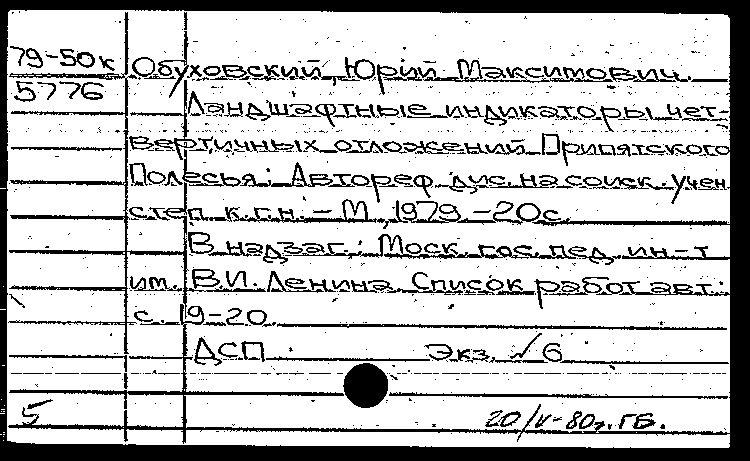 79-50к Обуховский, Юрий Максимович.
5776 Ландшафтные индикаторы чет-
вертичных отложений Припятского
Полесья: Автореф. дис. на соиск. учен
степ. к.г.н. - М., 1979. - 20с.
В надзаг.: Моск. гос. пед. ин-т
им. В.И. Ленина. Список работ авт.:
с. 19-20.
ДСП Экз. № 6
5 20/V-80г. ГБ.